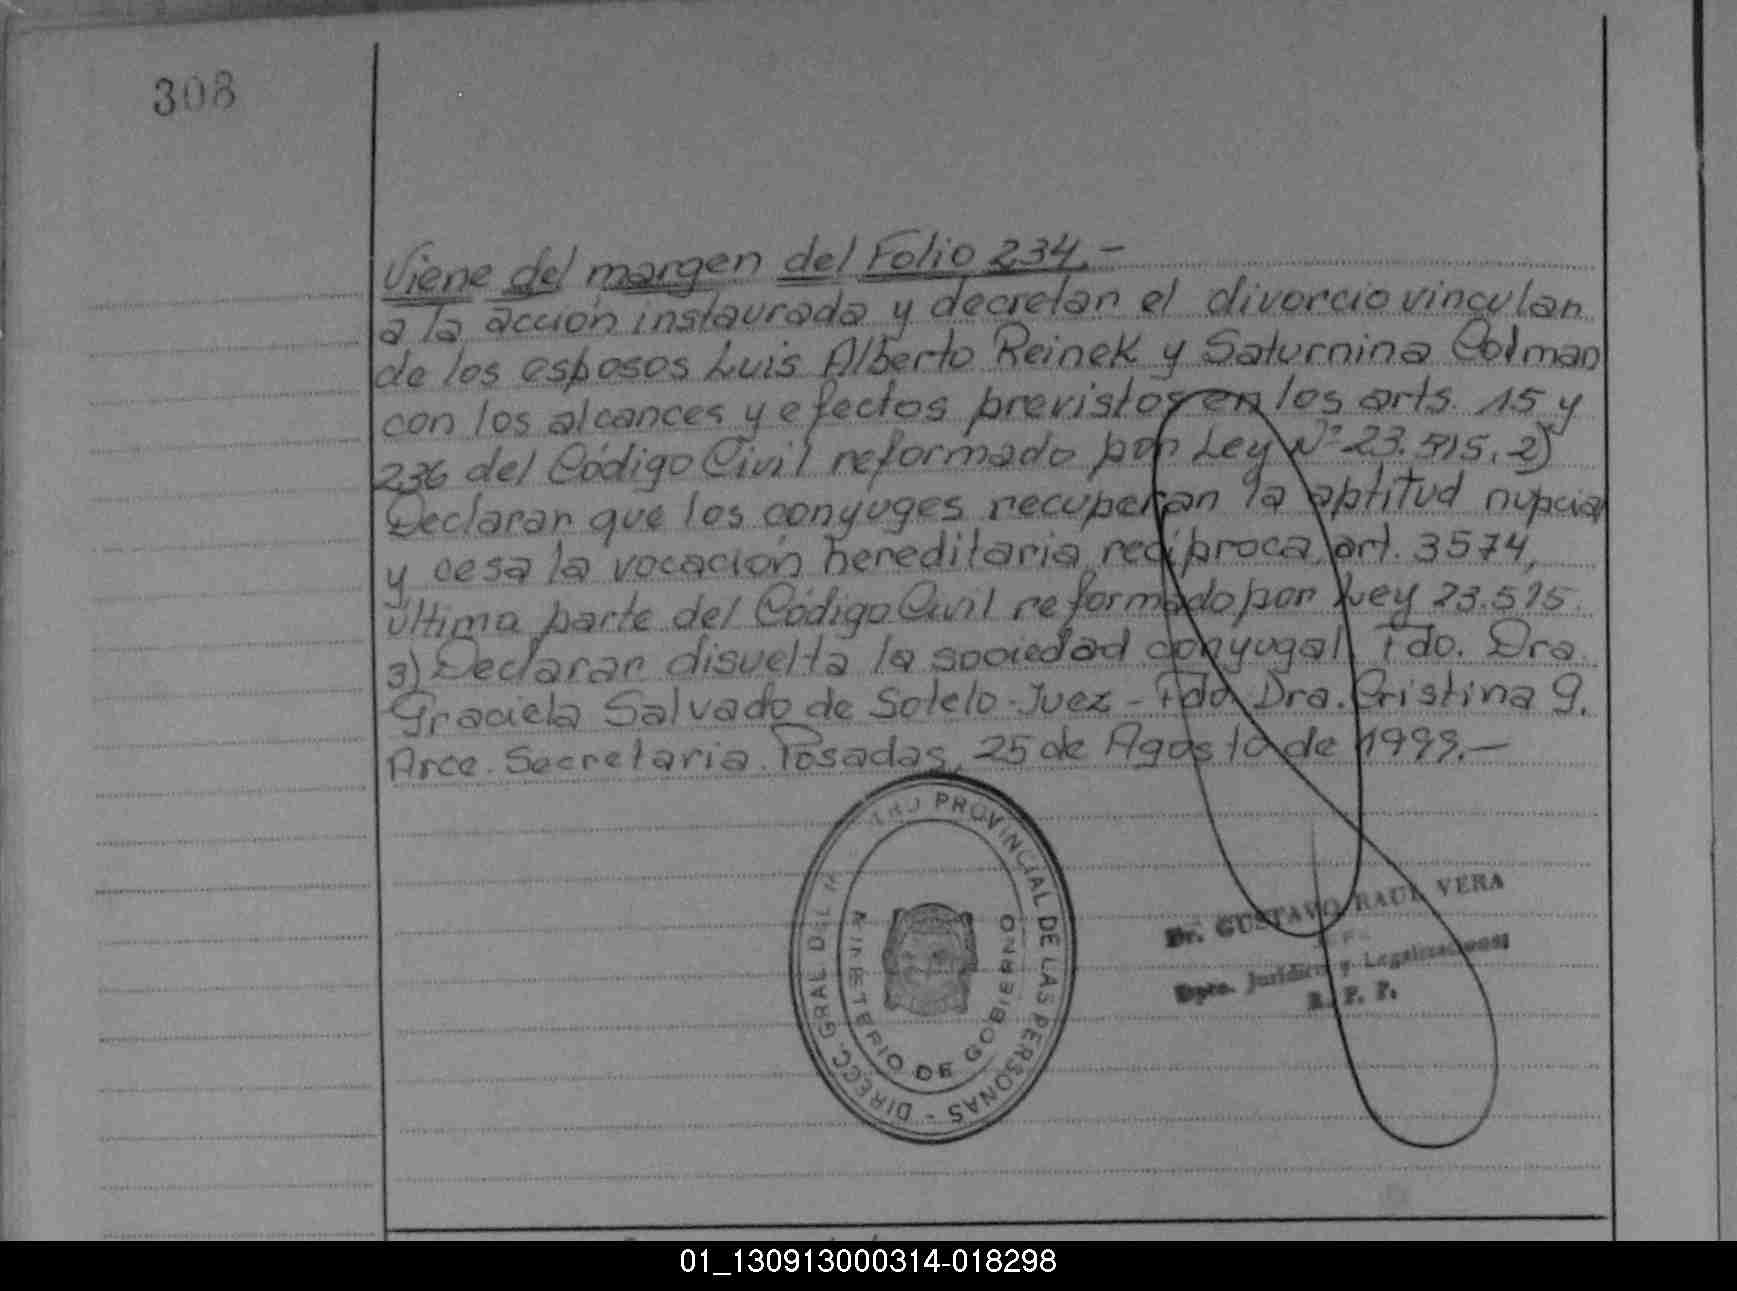 308
Viene del margen del Folio 234.-
a la acción instaurada y decretar el divorcio vincular
de los esposos Luis Alberto Reinek y Saturnina Colman
con los alcances y efectos previstos en los arts. 15 y
236 del Código Civil reformado por Ley Nº 23.515. 2)
Declarar que los conyuges recuperan la aptitud nupcial
y cesa la vocación hereditaria reciproca, art. 3574,
última parte del Código Civil reformado por Ley 23.515.
3) Declarar disuelta la sociedad conyugal Fdo. Dra.
Graciela Salvado de Sotelo - Juez - Fdo. Dra. Cristina G.
Arce. Secretaria. Posadas, 25 de Agosto de 1999.-
DIRECC. GRAL DEL PROVINCIAL DE LAS PERSONAS -
MINISTERIO DE GOBIERNO
Dr. GUSTAVO RAUL VERA
Dpto. Jurídico y Legalizaciones
R. P. P.
01_130913000314-018298